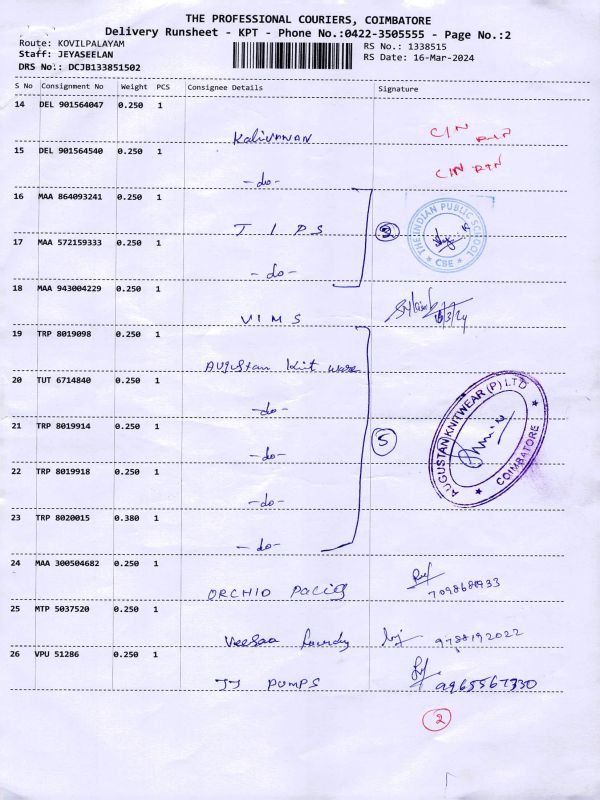 THE PROFESSIONAL COURIERS, COIMBATORE
Delivery Runsheet - KPT - Phone No.:0422-3505555 - Page No.:2
Route: KOVILPALAYAM
RS No.: 1338515
Staff: JEYASEELAN
RS Date: 16-Mar-2024
DRS No.: DCJB133851502
S No Consignment No Weight PCS Consignee Details Signature
14 DEL 901564047 0.250 1
Kalivanan CIN
15 DEL 901564540 0.250 1
-do- CIN RTN
16 MAA 864093241 0.250 1
T I P S 2
THE INDIAN PUBLIC SCHOOL
★ CBE ★
17 MAA 572159333 0.250 1
-do-
18 MAA 943004229 0.250 1
VIMS 16/3/24
19 TRP 8019098 0.250 1
Augustan Knit ware
20 TUT 6714840 0.250 1
-do-
AUGUSTAN KNITWEAR (P) LTD
★ COIMBATORE ★
21 TRP 8019914 0.250 1
-do- 5
22 TRP 8019918 0.250 1
-do-
23 TRP 8020015 0.380 1
-do-
24 MAA 300504682 0.250 1
ORCHID
25 MTP 5037520 0.250 1
9788192022
26 VPU 51286 0.250 1
JJ PUMPS 9965567330
2